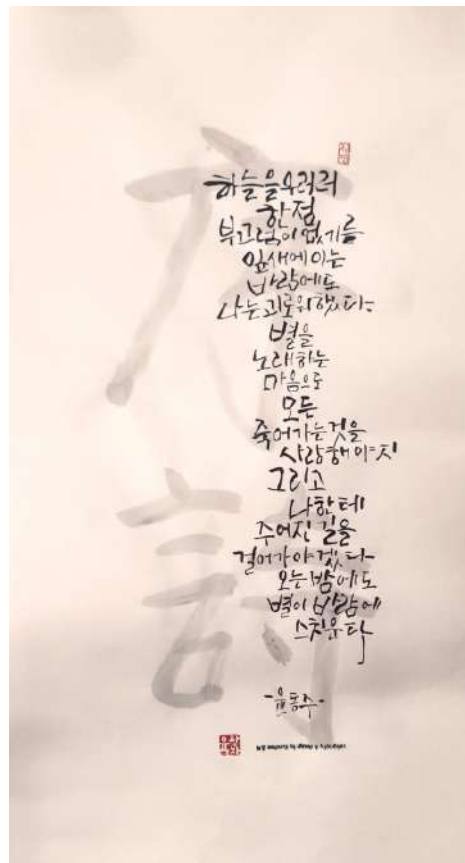 序詩
하늘을우러러
한점
부끄럼이 없기를
잎새에 이는
바람에도
나는괴로워했다.
별을
노래하는
마음으로
모든
죽어가는것을
사랑해야지
그리고
나한테
주어진 길을
걸어가야겠다
오는밤에도
별이 바람에
스치운다
-윤동주-